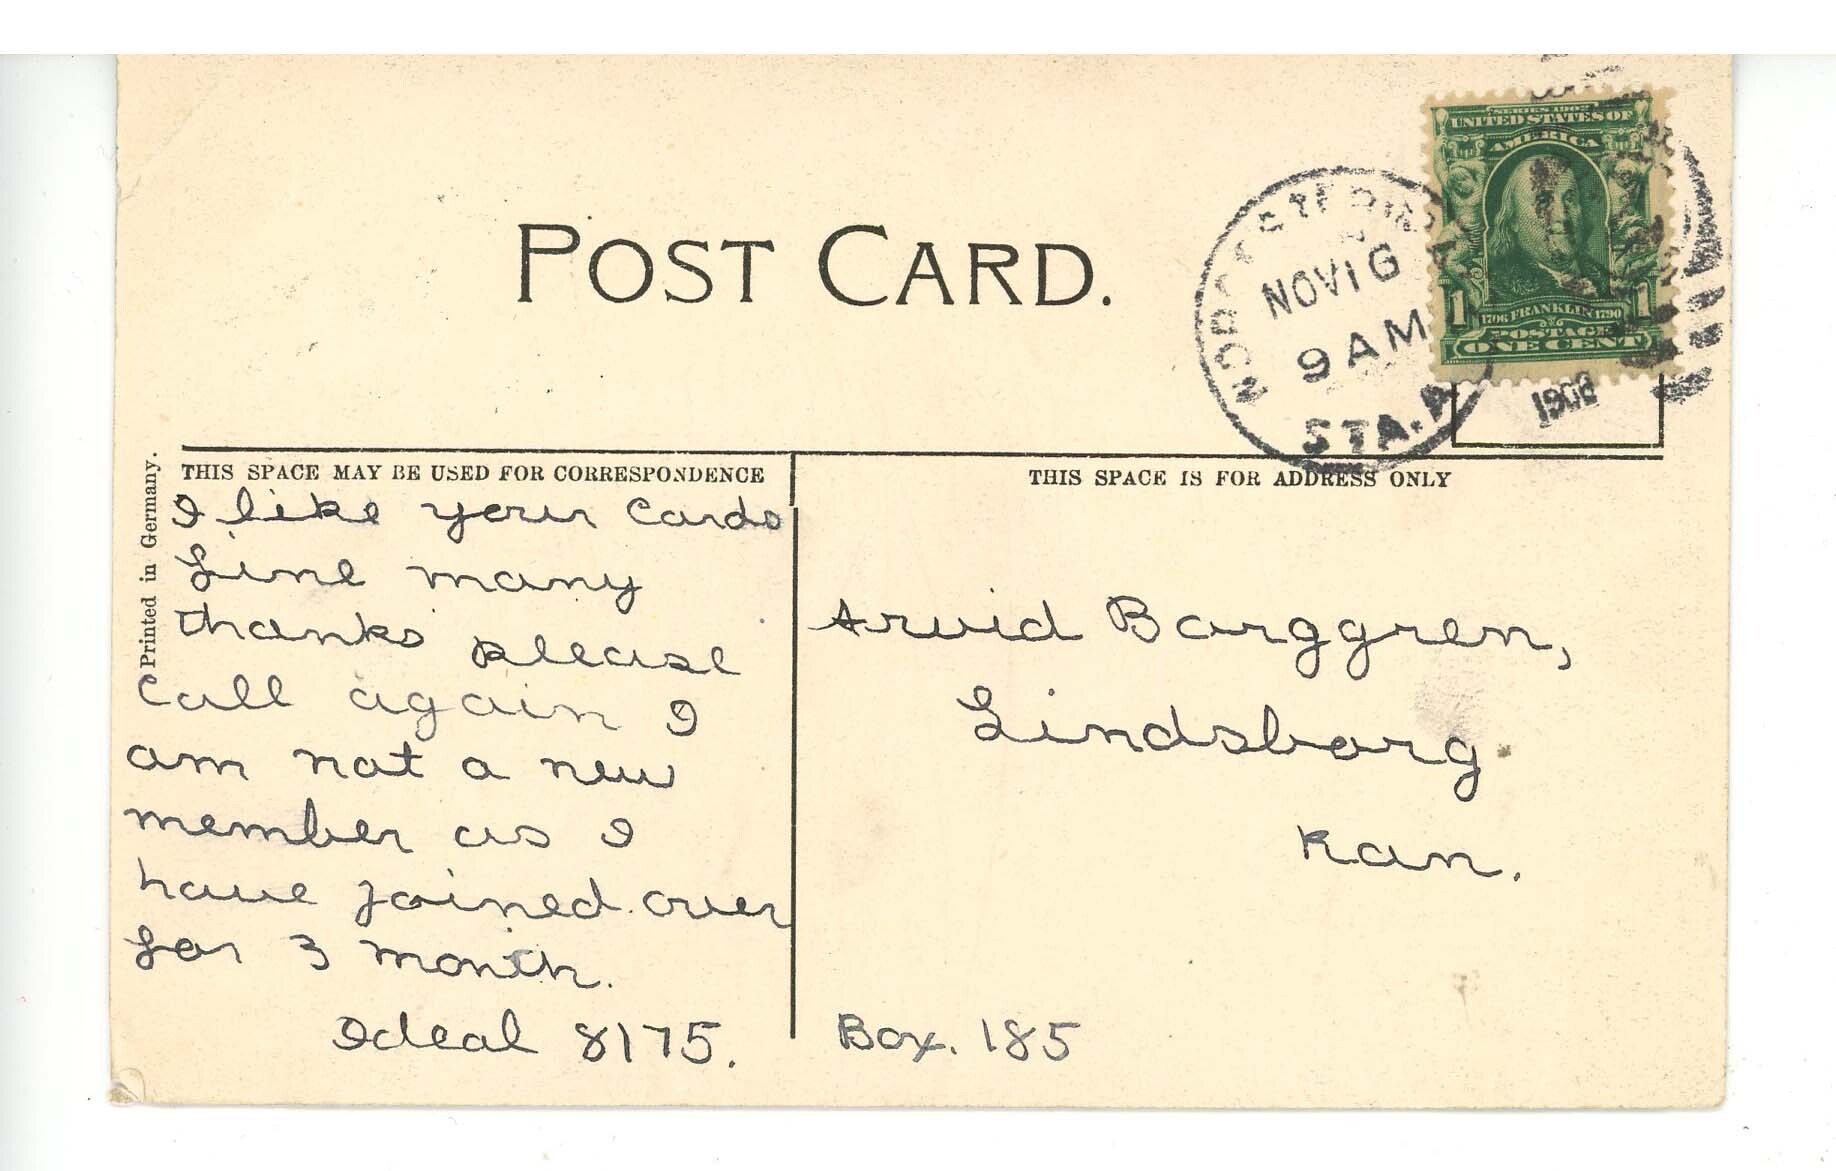 POST CARD.
SERIES 1902
UNITED STATES OF
AMERICA
1 1
1706 FRANKLIN 1790
POSTAGE
ONE CENT
NOV 16
9 AM
STA. A
1908
THIS SPACE MAY BE USED FOR CORRESPONDENCE
I like your Cards
fine many
thanks please
Call again I
am not a new
member as I
have joined over
for 3 month.
Ideal 8175.
Printed in Germany.
THIS SPACE IS FOR ADDRESS ONLY
Arvid Barggren,
Lindsborg
Kan.
Box. 185